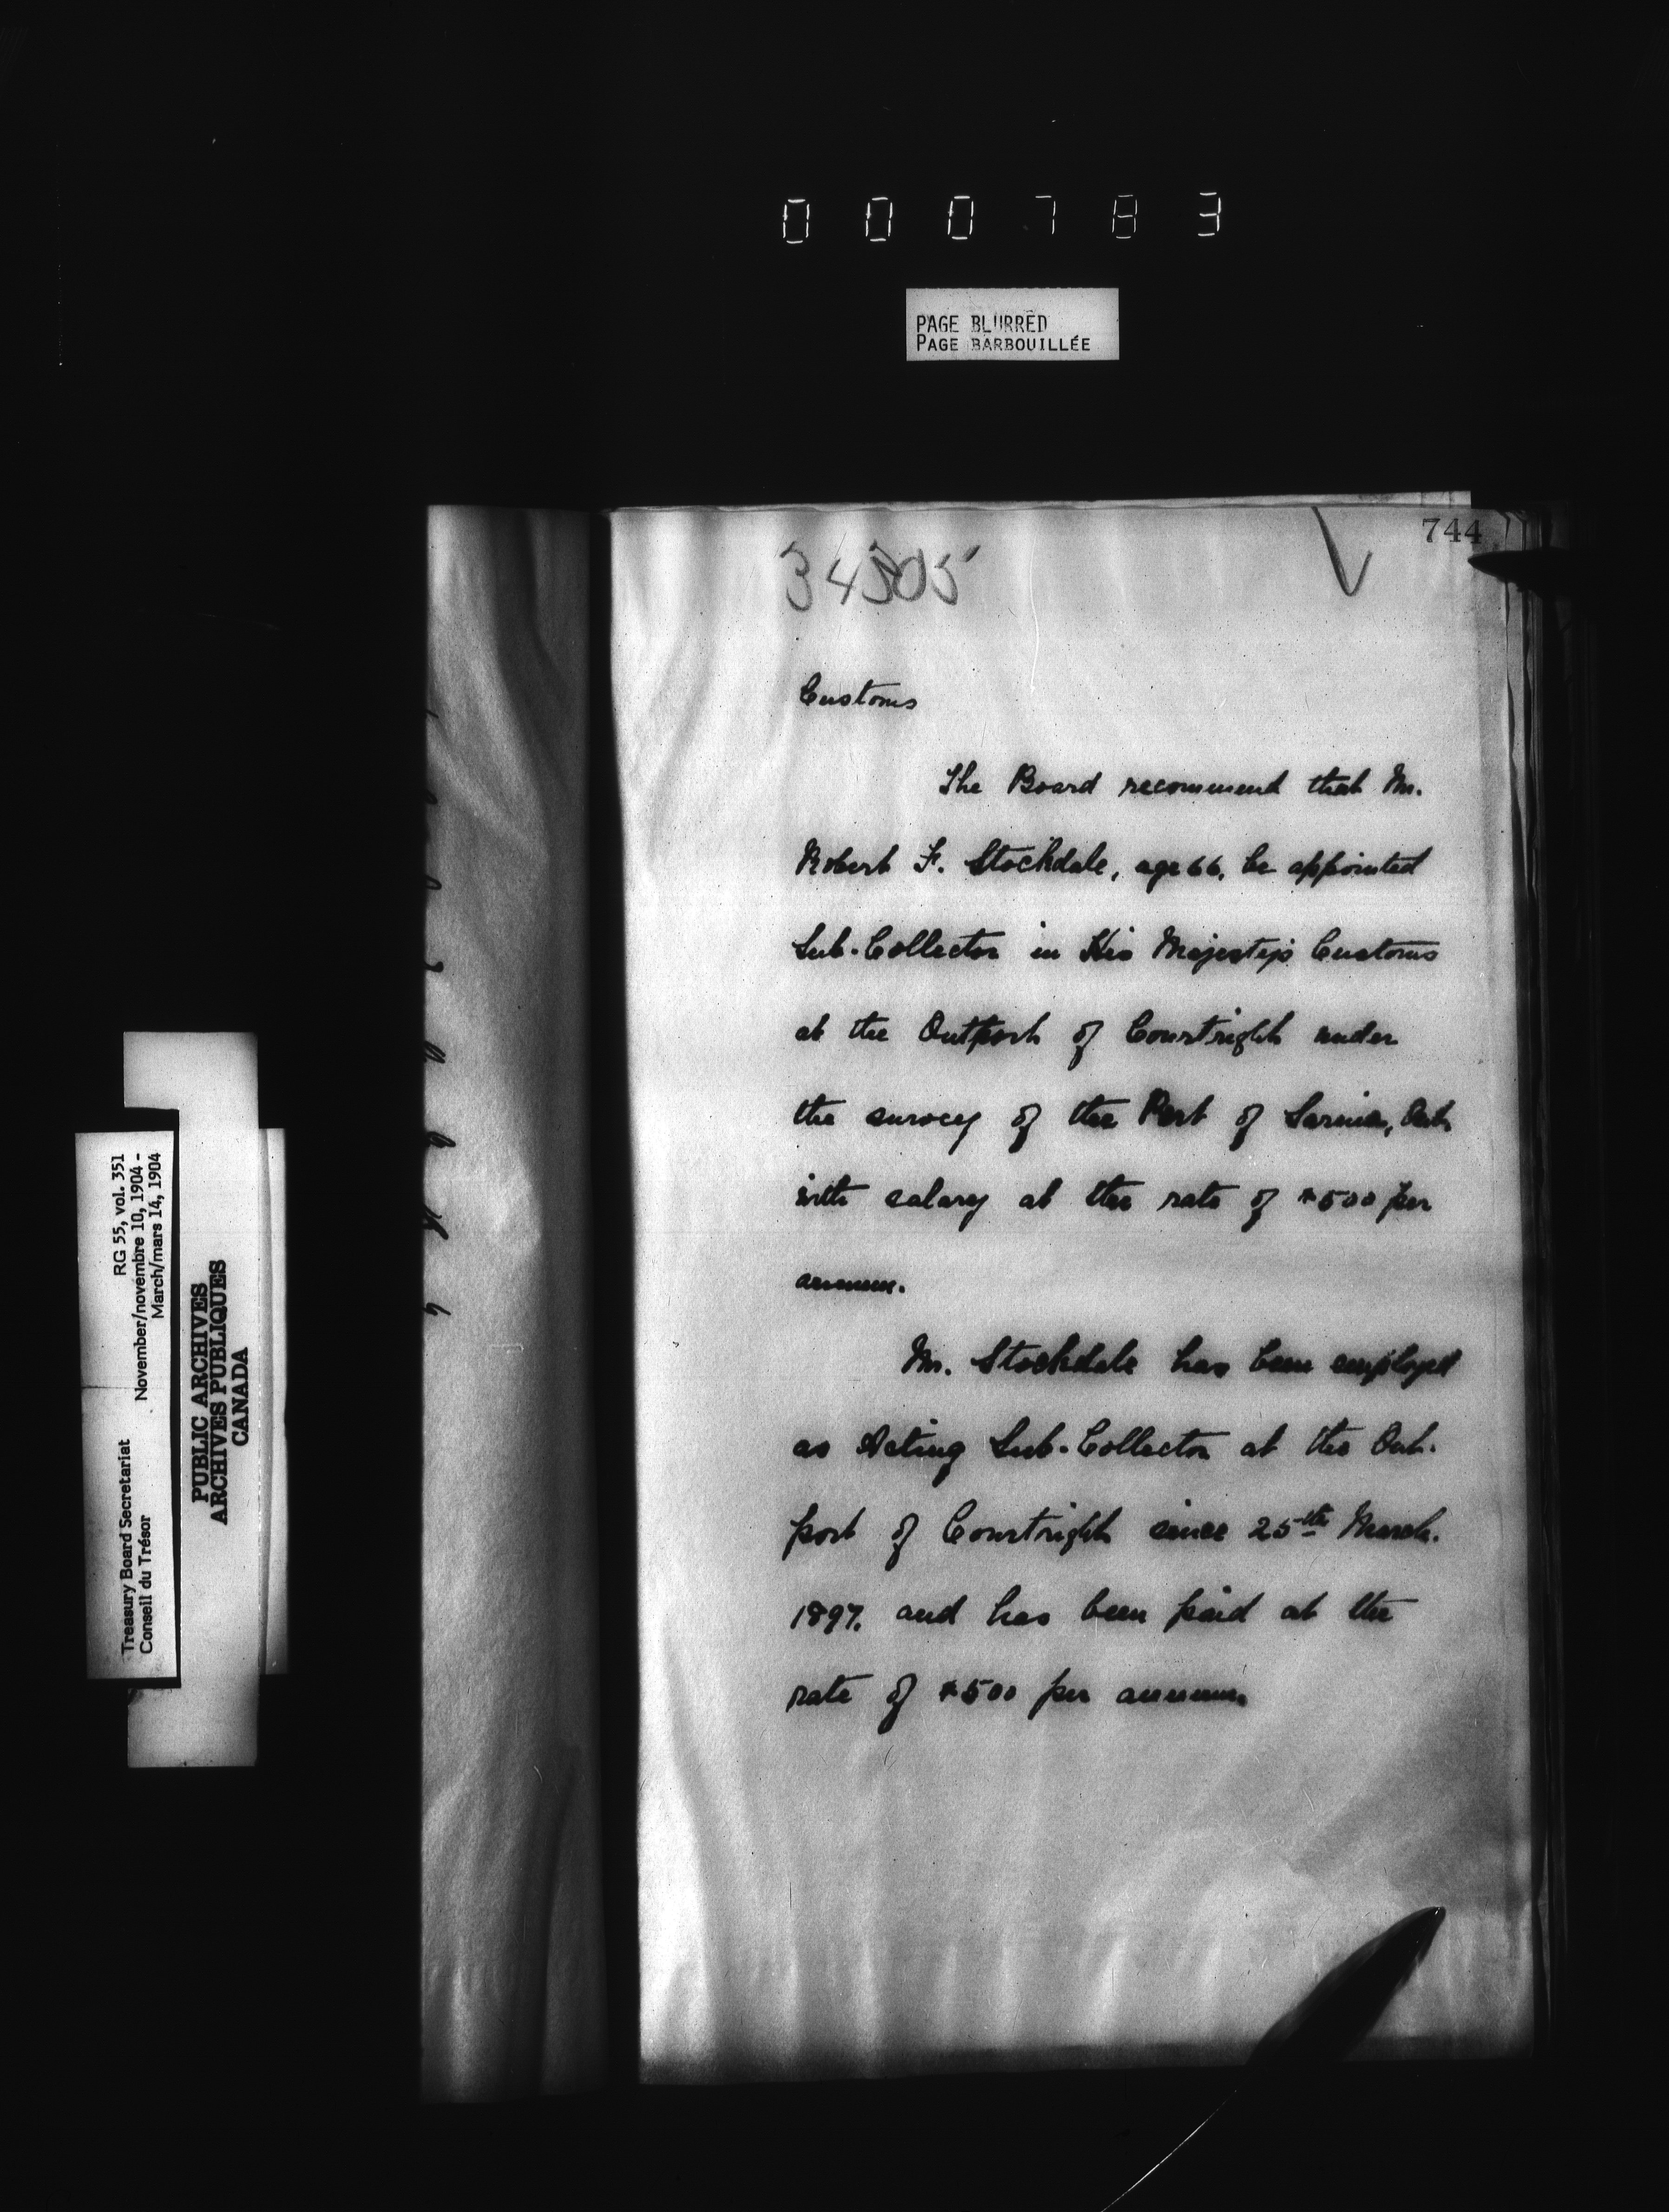 000783
PAGE BLURRED
PAGE BARBOUILLÉE
744
34505
Customs
The Board recommend that Mr.
Robert F. Stockdale, age 66, be appointed
Sub-Collector in His Majesty's Customs
at the Outport of Courtright under
the survey of the Port of Sarnia, Ont.
with salary at the rate of $500 per
annum.
Mr. Stockdale has been employed
as Acting Sub-Collector at the Out-
port of Courtright since 25th March.
1897, and has been paid at the
rate of $500 per annum.
Treasury Board Secretariat RG 55, vol. 351
Conseil du Trésor November/novembre 10, 1904 -
March/mars 14, 1904
PUBLIC ARCHIVES
ARCHIVES PUBLIQUES
CANADA